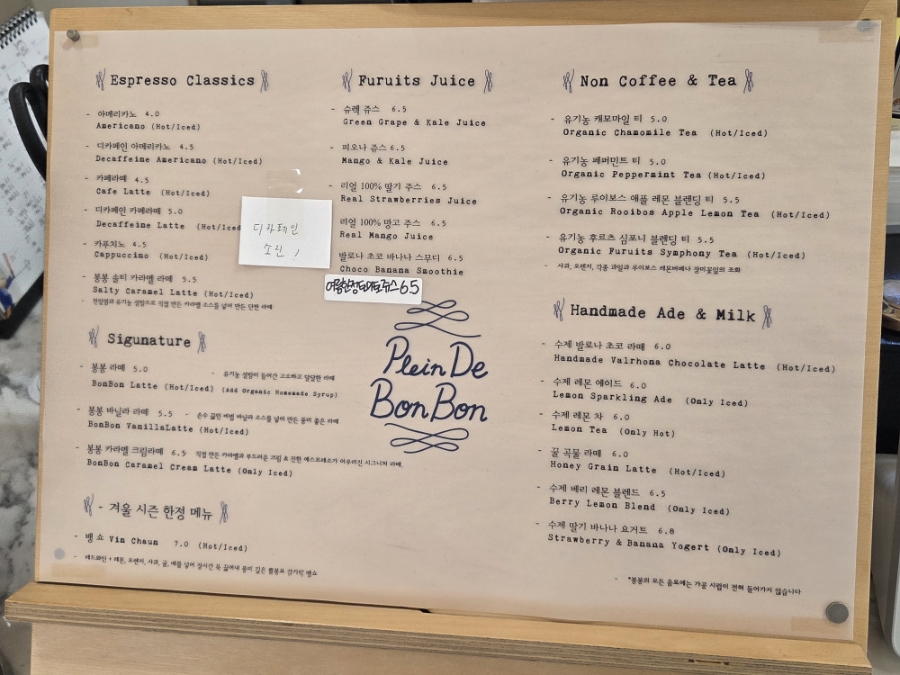 Espresso Classics
- 아메리카노 4.0
Americano (Hot/Iced)
- 디카페인 아메리카노 4.5
Decaffeine Americano (Hot/Iced)
- 카페라떼 4.5
Cafe Latte (Hot/Iced)
- 디카페인 카페라떼 5.0
Decaffeine Latte (Hot/Iced
- 카푸치노 4.5
Cappuccino (Hot/Iced)
- 봉봉 솔티 카라멜 라떼 5.5
Salty Caramel Latte (Hot/Iced)
- 천일염과 유기농 설탕으로 직접 만든 카라멜 소스를 넣어 만든 단짠 라떼
Sigunature
- 봉봉 라떼 5.0 - 유기농 설탕이 들어간 고소하고 달달한 라떼
BonBon Latte (Hot/Iced) (Add Organic Homemade Syrup)
- 봉봉 바닐라 라떼 5.5 - 손수 끓인 바닐라 소스를 넣어 만든 풍미 좋은 라떼
BonBon VanillaLatte (Hot/Iced)
- 봉봉 카라멜 크림라떼 6.5 직접 만든 카라멜과 부드러운 크림 & 진한 에스프레소가 어우러진 시그니처 라떼.
BonBon Caramel Cream Latte (Only Iced)
- 겨울 시즌 한정 메뉴
- 뱅쇼 Vin Chaun 7.0 (Hot/Iced)
- 레드와인 + 레몬, 오렌지, 사과, 귤, 배를 넣어 장시간 푹 끓여내 풍미 깊은 봉봉표 감기약 뱅쇼
디카페인
소진
Furuits Juice
- 슈렉 쥬스 6.5
Green Grape & Kale Juice
- 피오나 쥬스 6.5
Mango & Kale Juice
- 리얼 100% 딸기 주스 6.5
Real Strawberries Juice
- 리얼 100% 망고 주스 6.5
Real Mango Juice
- 발로나 초코 바나나 스무디 6.5
Choco Banana Smoothie
여름한정 토마토쥬스 6.5
Plein De
BonBon
Non Coffee & Tea
- 유기농 캐모마일 티 5.0
Organic Chamomile Tea (Hot/Iced)
- 유기농 페퍼민트 티 5.0
Organic Peppermint Tea (Hot/Iced)
- 유기농 루이보스 애플 레몬 블렌딩 티 5.5
Organic Rooibos Apple Lemon Tea (Hot/Iced)
- 유기농 후르츠 심포니 블렌딩 티 5.5
Organic Furuits Symphony Tea (Hot/Iced)
- 사과, 오렌지, 각종 과일과 루이보스 레몬버베나 장미꽃잎의 조화
Handmade Ade & Milk
- 수제 발로나 초코 라떼 6.0
Handmade Valrhona Chocolate Latte (Hot/Iced)
- 수제 레몬 에이드 6.0
Lemon Sparkling Ade (Only Iced)
- 수제 레몬 차 6.0
Lemon Tea (Only Hot)
- 꿀 곡물 라떼 6.0
Honey Grain Latte (Hot/Iced)
- 수제 베리 레몬 블렌드 6.5
Berry Lemon Blend (Only Iced)
- 수제 딸기 바나나 요거트 6.8
Strawberry & Banana Yogert (Only Iced)
- *봉봉의 모든 음료에는 가공 시럽이 전혀 들어가지 않습니다